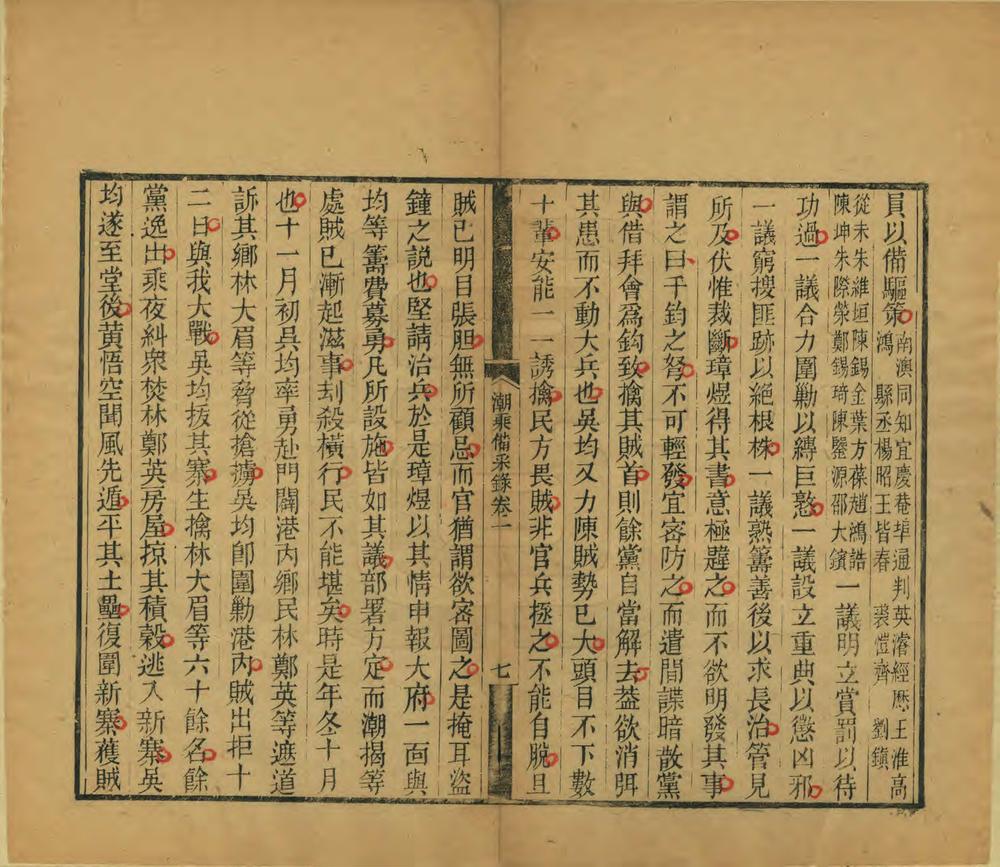 員以備驅策南澳同知宜慶菴埠通判英濬經歷王淮高
鴻縣丞楊昭王皆春裘愷齊劉鎮
從未朱維垣陳錫金葉方葆趙鴻誥
陳坤朱際榮鄭錫琦陳鑒源邵大鑌一議明立賞罰以待
功過一議合力圍勦以縛巨憝一議設立重典以懲凶邪
一議窮搜匪跡以絕根株一議熟籌善後以求長治管見
所及伏惟裁斷璋煜得其書意極韙之而不欲明發其事
謂之曰千鈞之弩不可輕發宜密防之而遣間諜暗散黨
與借拜會爲鈎致擒其賊首則餘黨自當解去葢欲消弭
其患而不動大兵也吳均又力陳賊勢已大頭目不下數
十輩安能一一誘擒民方畏賊非官兵拯之不能自脫且
潮乘備采錄卷一
七
賊已明目張胆無所顧忌而官猶謂欲密圖之是掩耳盜
鐘之說也堅請治兵於是璋煜以其情申報大府一面與
均等籌費募勇凡所設施皆如其議部署方定而潮揭等
處賊已漸起滋事刦殺橫行民不能堪矣時是年冬十月
也十一月初吳均率勇赴門闢港丙鄉民林鄭英等遮道
訴其鄉林大眉等脅從搶擄吳均卽圍勦港丙賊出拒十
二日與我大戰吳均拔其寨生擒林大眉等六十餘名餘
黨逸出乘夜糾衆焚林鄭英房屋掠其積穀逃入新寨吳
均遂至堂後黃悟空聞風先遁平其土壘復圍新寨獲賊